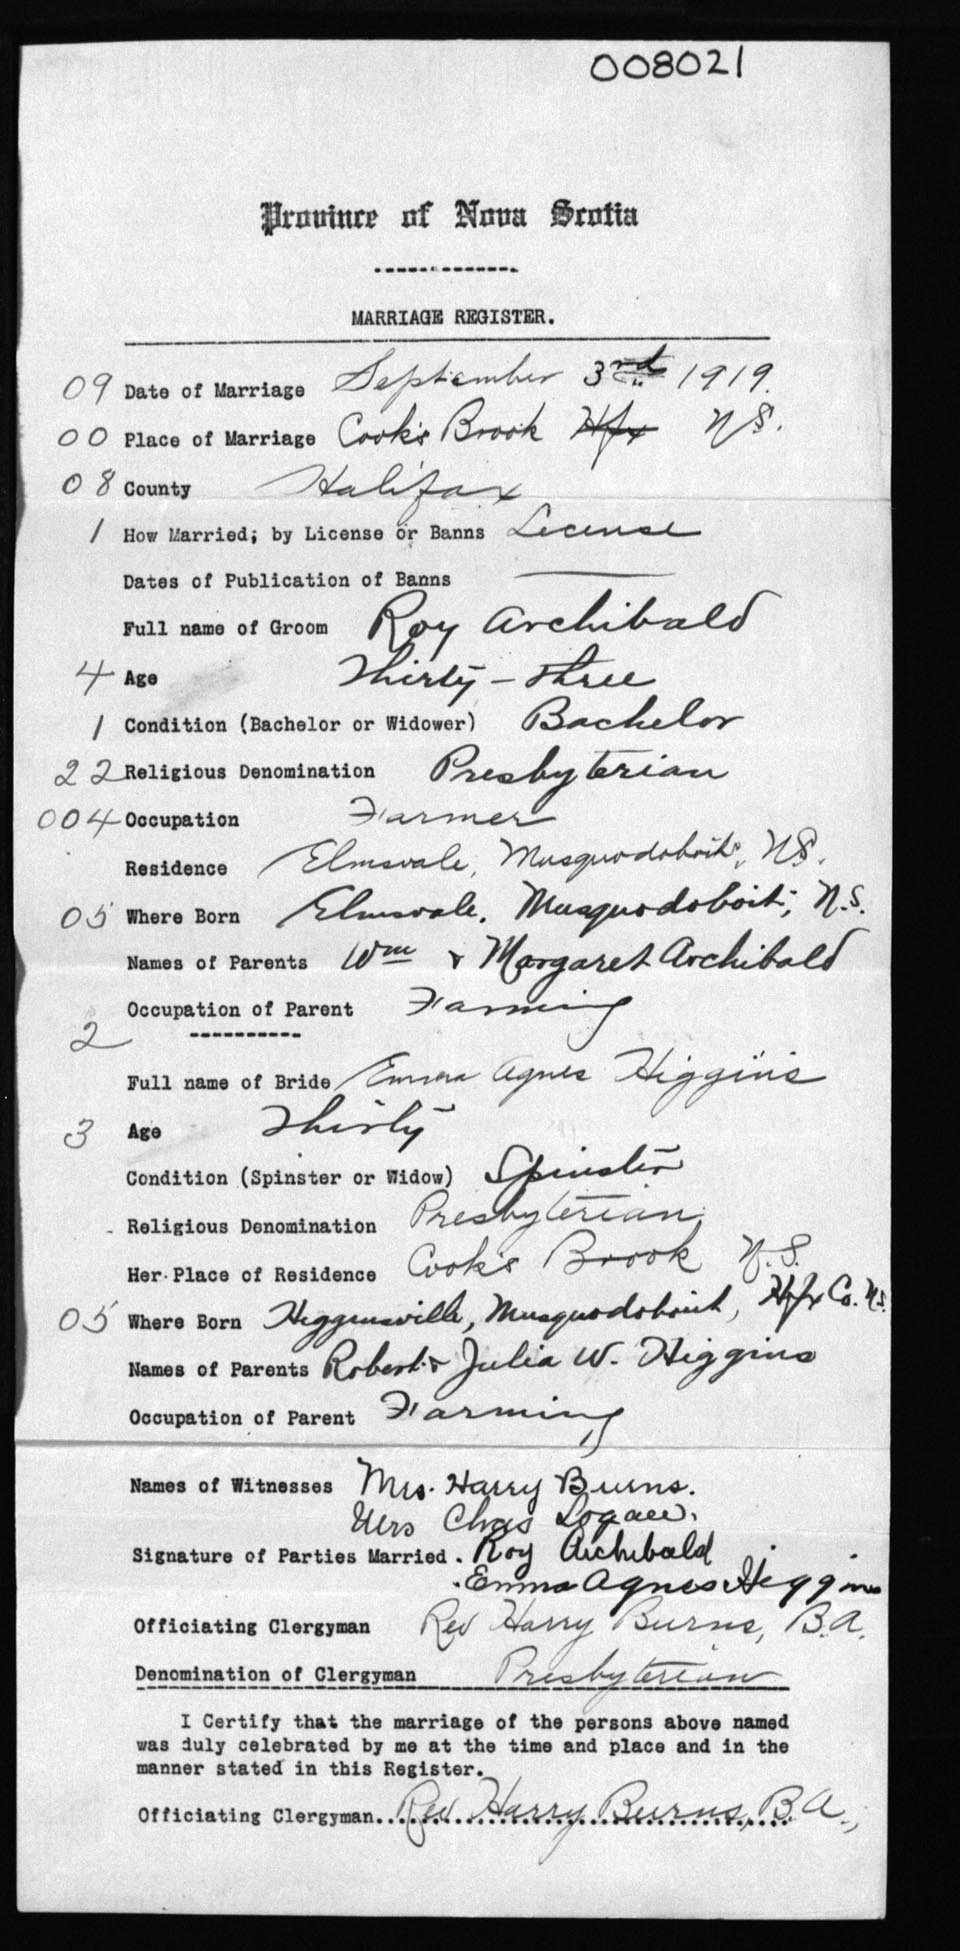 008021
Province of Nova Scotia
MARRIAGE REGISTER.
09 Date of Marriage September 3rd 1919.
00 Place of Marriage Cook's Brook Hfx N.S.
08 County Halifax
1 How Married; by License or Banns License
Dates of Publication of Banns
Full name of Groom Roy Archibald
4 Age Thirty-three
1 Condition (Bachelor or Widower) Bachelor
22 Religious Denomination Presbyterian
004 Occupation Farmer
Residence Elmsvale, Musquodoboit, N.S.
05 Where Born Elmsvale, Musquodoboit, N.S.
Names of Parents Wm & Margaret Archibald
Occupation of Parent Farming
2
Full name of Bride Emma Agnes Higgins
3 Age Thirty
Condition (Spinster or Widow) Spinster
Religious Denomination Presbyterian
Her Place of Residence Cook's Brook N.S.
05 Where Born Higginsville, Musquodoboit, Hfx Co. N.S.
Names of Parents Robert & Julia W. Higgins
Occupation of Parent Farming
Names of Witnesses Mrs. Harry Burns.
Mrs Chas Logan.
Signature of Parties Married. Roy Archibald
Emma Agnes Higgins
Officiating Clergyman Rev Harry Burns, B.A.
Denomination of Clergyman Presbyterian
I Certify that the marriage of the persons above named
was duly celebrated by me at the time and place and in the
manner stated in this Register.
Officiating Clergyman....Rev Harry Burns, B.A.,